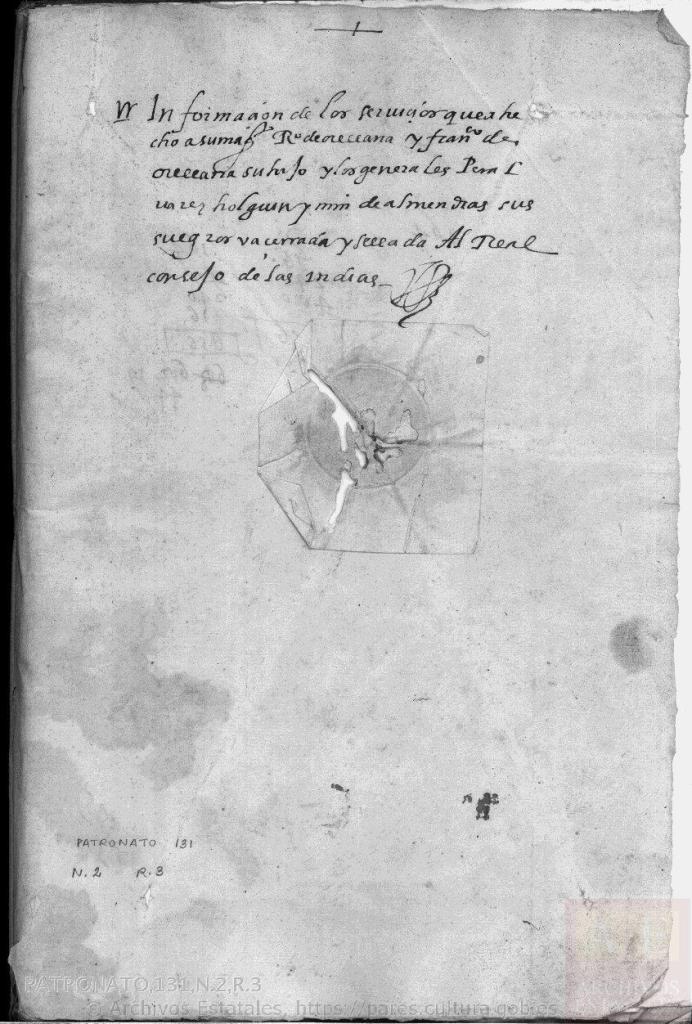 1
Informacion de los serviçios que a he
cho a su mag R.º de orellana y fran.co de
orellana su hijo y los generales Pera L
varez holguin y min de almendras sus
suegros va cerrada y sellada Al Real
consejo de las indias
PATRONATO 131
N.2 R.3
PATRONATO,131,N.2,R.3
© Archivos Estatales, https://pares.cultura.gob.es